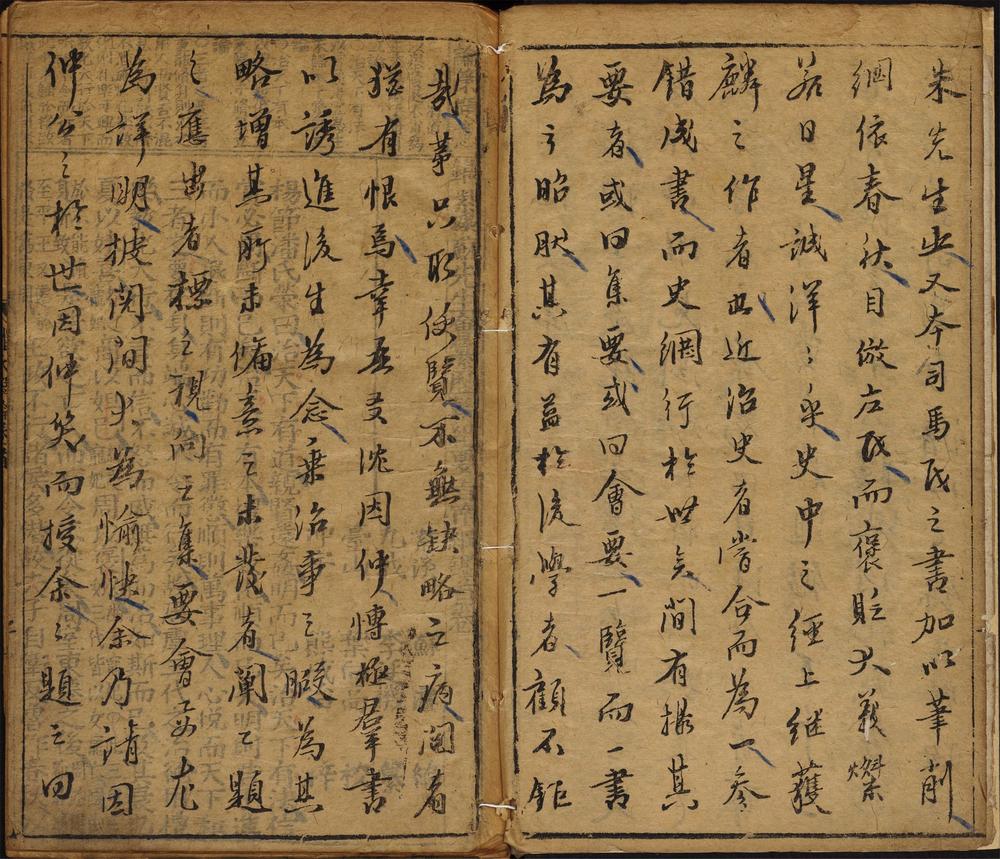 朱先生出又本司馬氏之書加以筆削
綱依春秋目倣左氏而褒貶大義燦
若日星誠洋〻乎史中之經上継獲
麟之作者也近治史者嘗合而為一参
錯成書而史綱行於世矣間有撮其
要者或曰集要或曰會要一覽而一書
為之昭然其有益於後學者顧不鉅
哉茅只取便覽不無缺略之病閱者
猶有恨焉幸吾友沈因仲慱極群書
以誘進後生為念乗治事之暇為其
略增其所未備意之未茂者闡之題
之應出者標之視向之集要會要尤
為詳明披閱間大為愉快余乃請因
仲公之於世因仲笑而授余〻題之曰